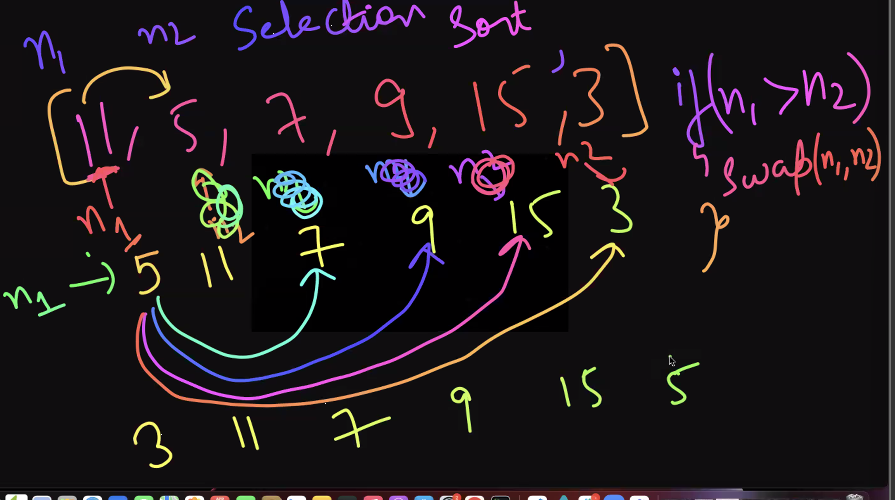 n1 n2 Selection Sort
[11, 5, 7, 9, 15, 3]
if(n1 > n2)
{ swap(n1, n2)
}
n1 n2 n2
n1 → 5 11 7 9 15 3
3 11 7 9 15 5